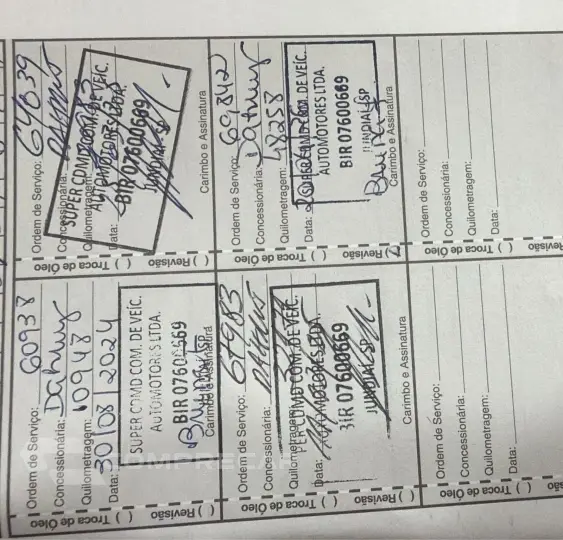 Ordem de Serviço: 60938
Concessionária: Dahruj
Quilometragem: 10948
Data: 30/08/2024
SUPER COMD COM. DE VEÍC.
AUTOMOTORES LTDA.
BIR 07600669
JUNDIAÍ-SP
Carimbo e Assinatura
( ) Troca de Óleo ( ) Revisão
Ordem de Serviço: 64839
Concessionária:
Quilometragem:
Data:
SUPER COMD COM. DE VEÍC.
AUTOMOTORES LTDA.
BIR 07600669
JUNDIAÍ-SP
Carimbo e Assinatura
( ) Troca de Óleo ( ) Revisão
Ordem de Serviço:
Concessionária:
Quilometragem:
Data:
PER COMD COM. DE VEÍC.
AUTOMOTORES LTDA.
BIR 07600669
JUNDIAÍ-SP
Carimbo e Assinatura
( ) Troca de Óleo ( ) Revisão
Ordem de Serviço: 69842
Concessionária: Dahruj
Quilometragem: 48258
Data:
SUPER COMD COM. DE VEÍC.
AUTOMOTORES LTDA.
BIR 07600669
JUNDIAÍ-SP
Carimbo e Assinatura
( ) Troca de Óleo ( ) Revisão
Ordem de Serviço:
Concessionária:
Quilometragem:
Data:
Carimbo e Assinatura
( ) Troca de Óleo ( )
Ordem de Serviço:
Concessionária:
Quilometragem:
Data:
Carimbo e Assinatura
( ) Troca de Óleo ( )
COMPRECAR